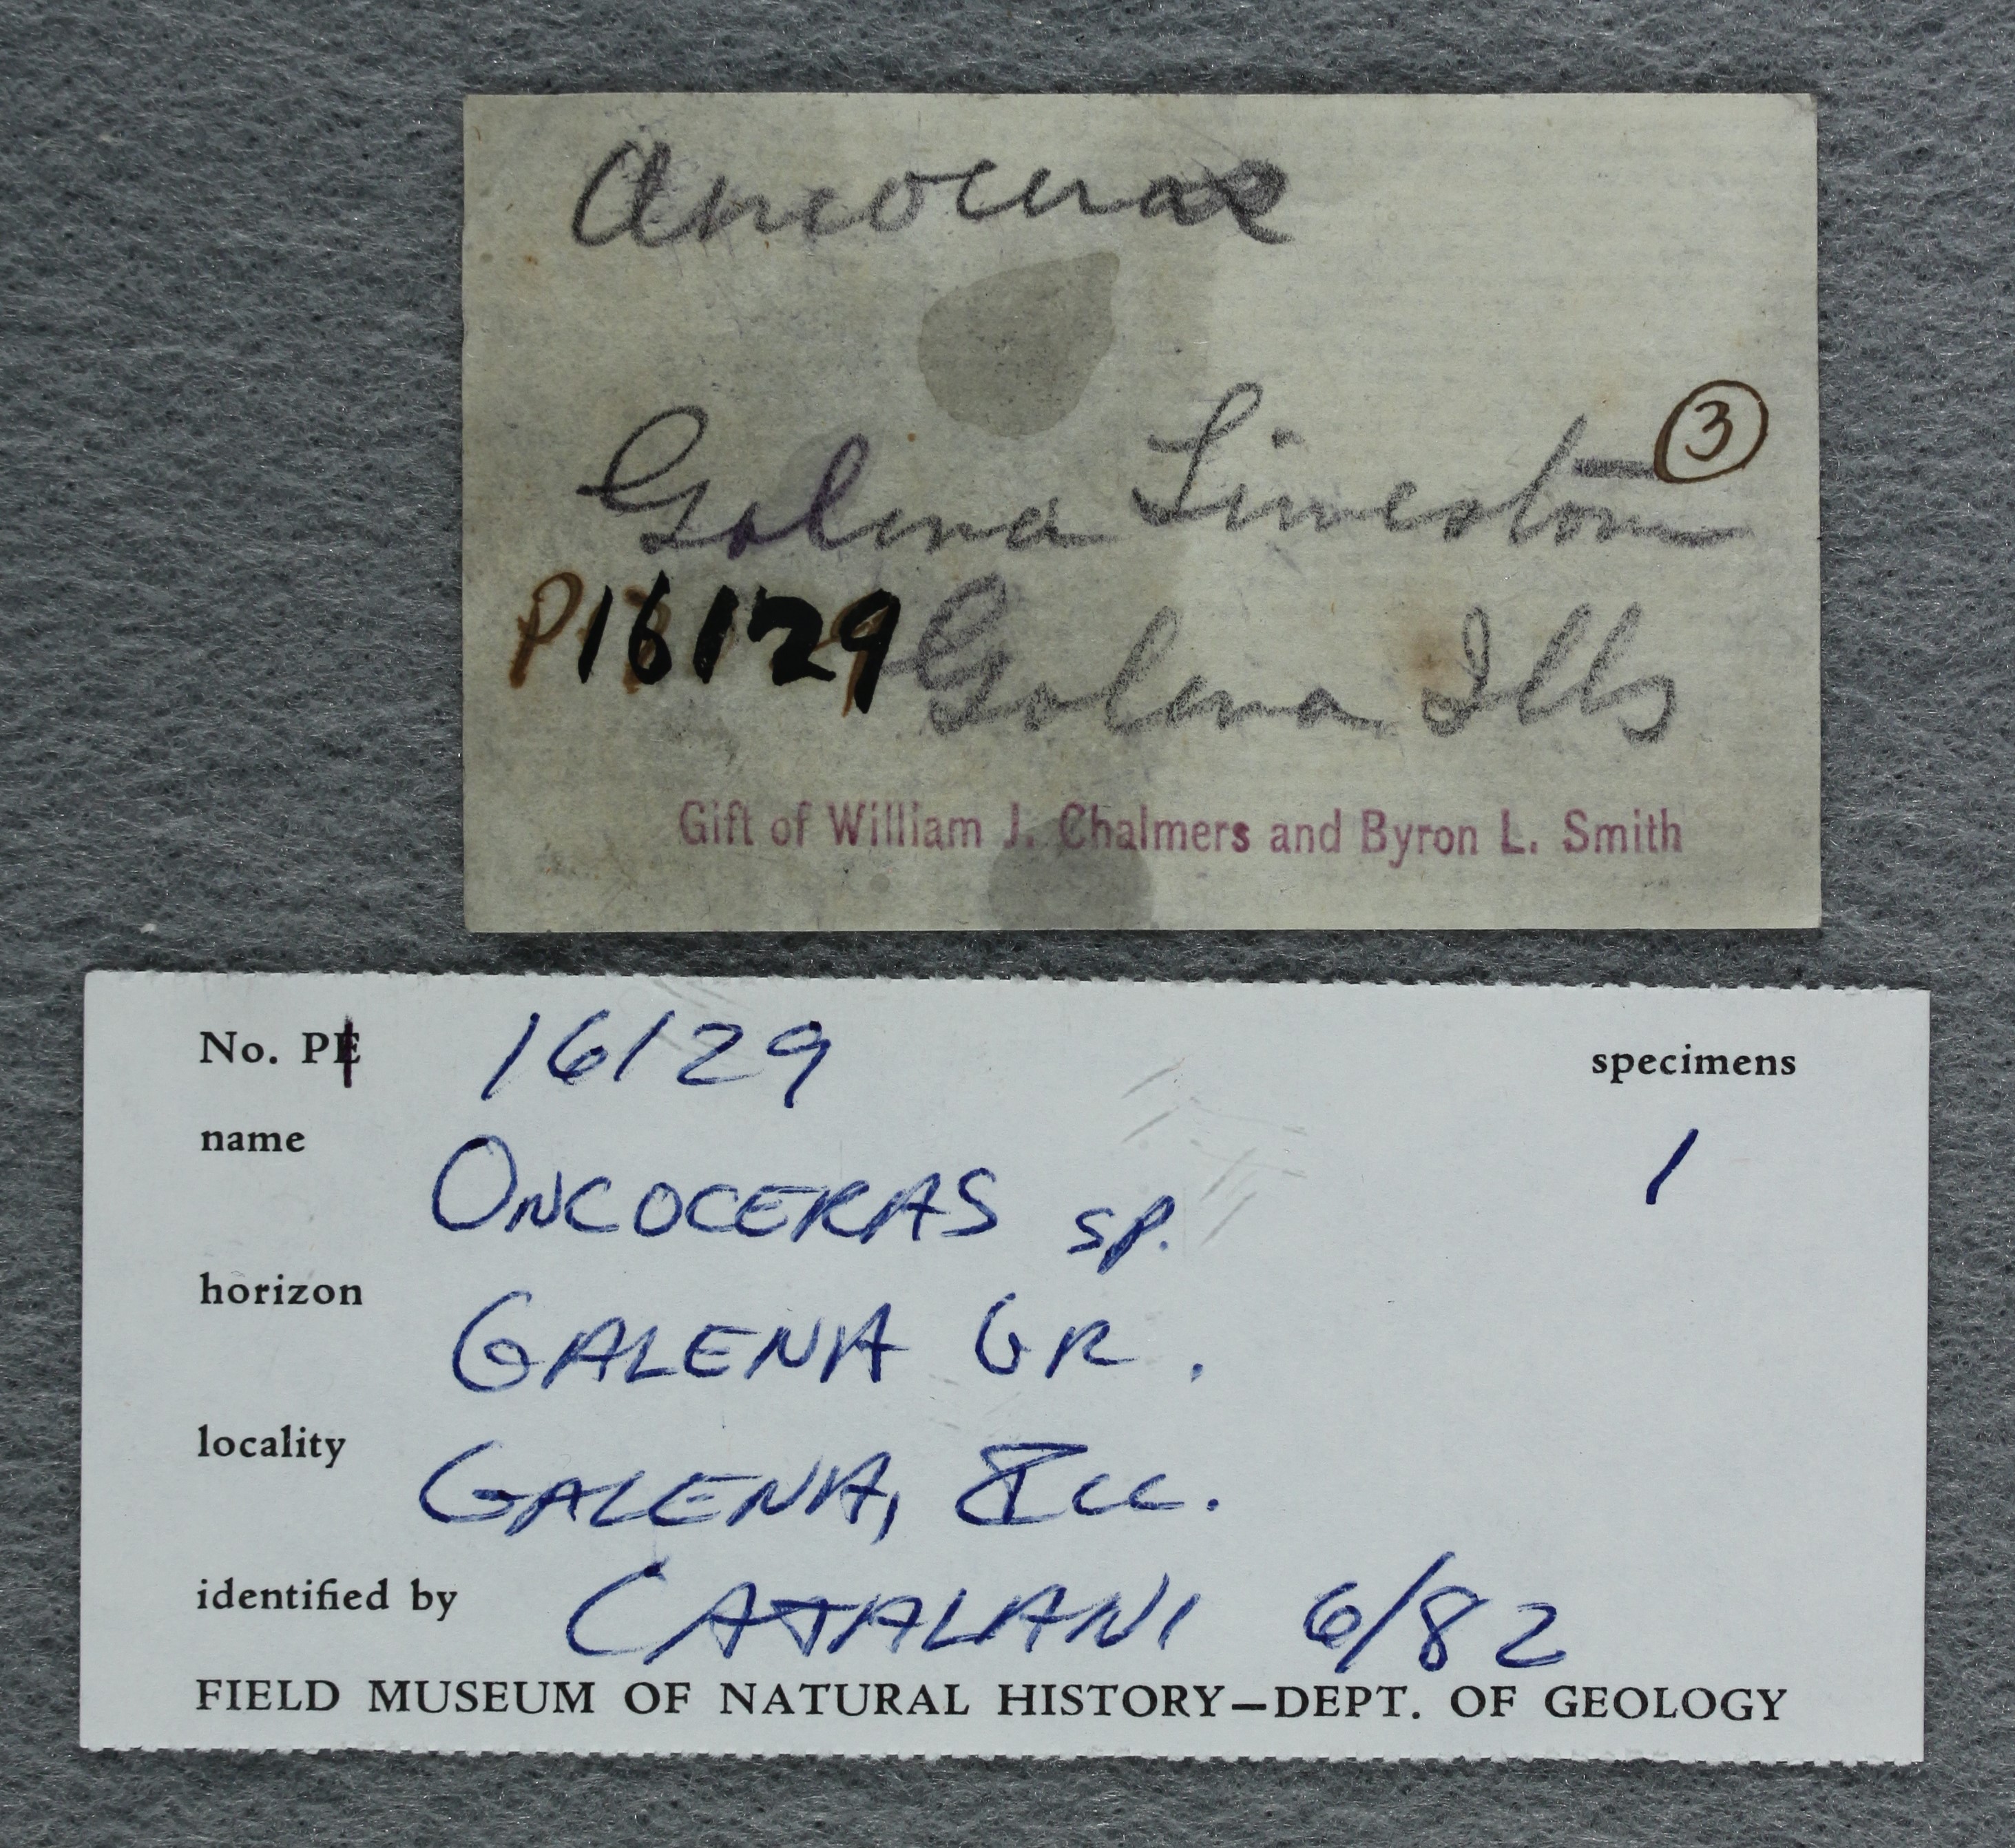 Ancoceras
Galena Limestone
③
P16129
Galena Ills
Gift of William J. Chalmers and Byron L. Smith
No. PE 16129
specimens
name
1
ONCOCERAS sp.
horizon
GALENA GR.
locality
GALENA, ILL.
identified by CATALANI 6/82
FIELD MUSEUM OF NATURAL HISTORY—DEPT. OF GEOLOGY